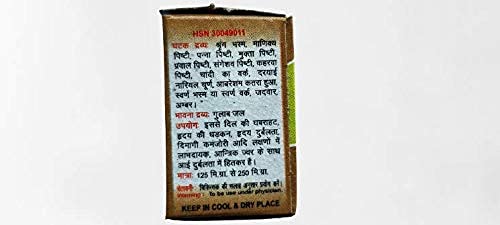 HSN 30049011
घटक द्रव्यः श्रृंग भस्म, माणिक्य
पिष्टी, पन्ना पिष्टी, मुक्ता पिष्टी,
प्रवाल पिष्टी, संगेशव पिष्टी, कहरवा
पिष्टी, चांदी का वर्क, दरयाई
नारियल चूर्ण, आबरेशम कतरा हुआ,
स्वर्ण भस्म या स्वर्ण वर्क, जदवार,
अम्बर।
भावना द्रव्यः गुलाब जल
उपयोगः इससे दिल की घबराहट,
हृदय की धडकन, हृदय दुर्बलता,
दिमागी कमजोरी आदि लक्षणों में
लाभदायक, आन्त्रिक ज्वर के साथ
आई दुर्बलता में हितकर है।
मात्राः 125 मि.ग्रा. से 250 मि.ग्रा.
चेतावनी : चिकित्सक की सलाह अनुसार प्रयोग करें।
Warning : To be use under physician.
KEEP IN COOL & DRY PLACE